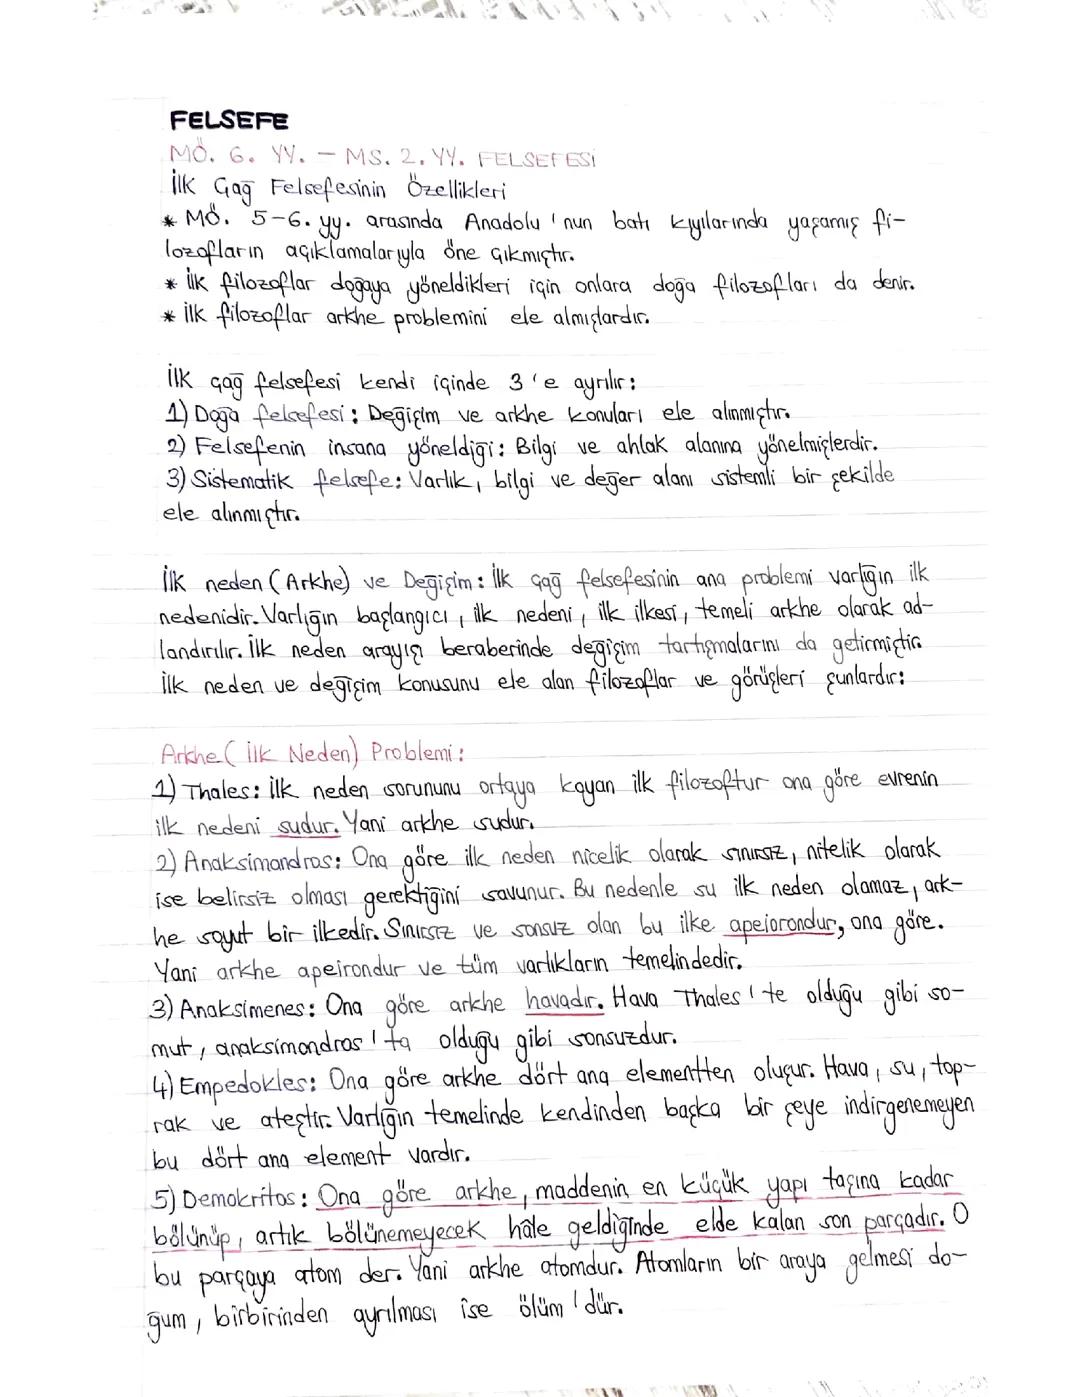 FELSEFE
MÖ. 6. YY. - MS. 2. YY. FELSEFESİ
İlk Çağ Felsefesinin Özellikleri
* MÖ. 5-6. yy. arasında Anadolu'nun batı kıyılarında yaşamış fi-
lozofların açıklamalarıyla öne çıkmıştır.
* ilk filozoflar doğaya yöneldikleri için onlara doğa filozofları da denir.
* ilk filozoflar arkhe problemini ele almışlardır.
İlk çağ felsefesi kendi içinde 3'e ayrılır:
1) Doğa felsefesi: Değişim ve arkhe konuları ele alınmıştır.
2) Felsefenin insana yöneldiği: Bilgi ve ahlak alanına yönelmişlerdir.
3) Sistematik felsefe: Varlık, bilgi ve değer alanı sistemli bir şekilde
ele alınmıştır.
İlk neden (Arkhe) ve Değişim: İlk çağ felsefesinin ana problemi varlığın ilk
nedenidir. Varlığın başlangıcı, ilk nedeni, ilk ilkesi, temeli arkhe olarak ad-
landırılır. İlk neden arayışı beraberinde değişim tartışmalarını da getirmiştir.
İlk neden ve değişim konusunu ele alan filozoflar ve görüşleri şunlardır:
Arkhe (İlk Neden) Problemi:
1) Thales: İlk neden sorununu ortaya koyan ilk filozoftur ona göre evrenin
ilk nedeni sudur. Yani arkhe sudur.
2) Anaksimandros: Ona göre ilk neden nicelik olarak sınırsız, nitelik olarak
ise belirsiz olması gerektiğini savunur. Bu nedenle su ilk neden olamaz, ark-
he soyut bir ilkedir. Sınırsız ve sonsuz olan bu ilke apeiorondur, ona göre.
Yani arkhe apeirondur ve tüm varlıkların temelindedir.
3) Anaksimenes: Ona göre arkhe havadır. Hava Thales'te olduğu gibi so-
mut, anaksimandros'ta olduğu gibi sonsuzdur.
4) Empedokles: Ona göre arkhe dört ana elementten oluşur. Hava, su, top-
rak ve ateştir. Varlığın temelinde kendinden başka bir şeye indirgenemeyen
bu dört ana element vardır.
5) Demokritos: Ona göre arkhe, maddenin en küçük yapı taşına kadar
bölünüp, artık bölünemeyecek hâle geldiğinde elde kalan son parçadır. O
bu parçaya atom der. Yani arkhe atomdur. Atomların bir araya gelmesi do-
ğum, birbirinden ayrılması ise ölüm'dür.